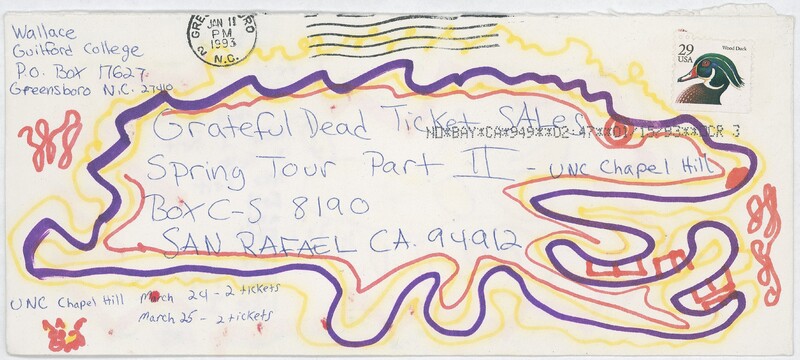 Wallace
Guilford College
P.O. Box 17627
Greensboro N.C. 27410
JAN 11
PM
1993
N.C.
29
USA
Wood Duck
Grateful Dead Ticket SALES
NO*BAY*CA*949**02:47**01/15/93**OCR 3
Spring Tour Part II - UNC Chapel Hill
Box C-S 8190
SAN RAFAEL CA. 94912
UNC Chapel Hill March 24 - 2 tickets
March 25 - 2 tickets